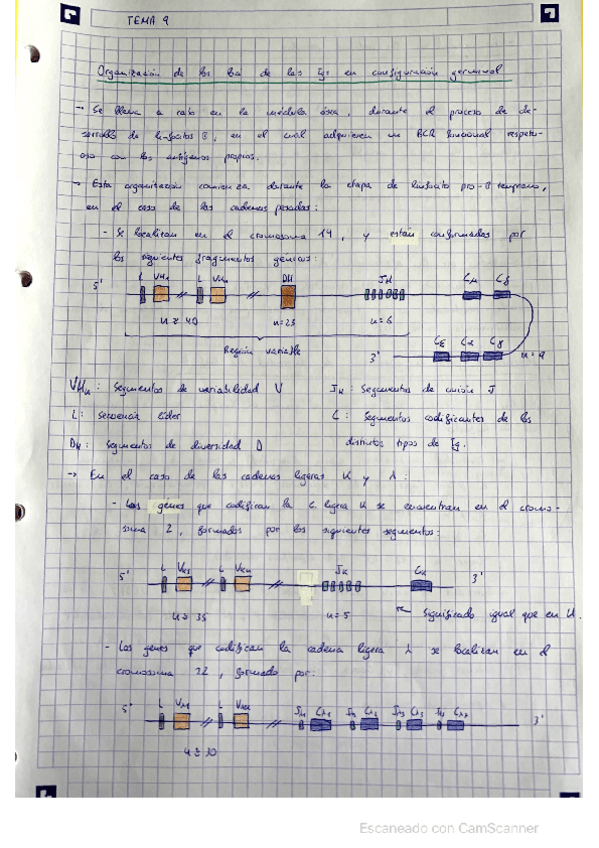 TEMA 9
Organización de los loci de las Igs en configuración germinal
→ Se lleva a cabo en la médula ósea, durante el proceso de de-
sarrollo de linfocitos B, en el cual adquieren un BCR funcional respetu-
oso con los antígenos propios.
→ Esta organización comienza durante la etapa de linfocito pro-B temprano,
en el caso de las cadenas pesadas:
- Se localizan en el cromosoma 14, y están conformadas por
los siguientes fragmentos génicos:
5' L VH₁ L VHₙ DH JH Cμ Cδ
n ≈ 40 n=23 n=6
Región variable 3' Cε Cα Cγ n=9
VHₙ: Segmentos de variabilidad V JH: Segmentos de unión J
L: Secuencia líder C: Segmentos codificantes de los
DH: Segmentos de diversidad D distintos tipos de Ig.
→ En el caso de las cadenas ligeras K y λ:
- Los genes que codifican la c. ligera K se encuentran en el cromo-
soma 2, formados por los siguientes segmentos:
5' L Vκ₁ L Vκₙ Jκ Cκ 3'
n ≈ 35 n=5 Significado igual que en H.
- Los genes que codifican la cadena ligera λ se localizan en el
cromosoma 22, formado por:
5' L Vλ₁ L Vλₙ Jλ₁ Cλ₁ Cλ₂ Jλ₃ Cλ₃ Cλ₇ 3'
n ≈ 30
Escaneado con CamScanner